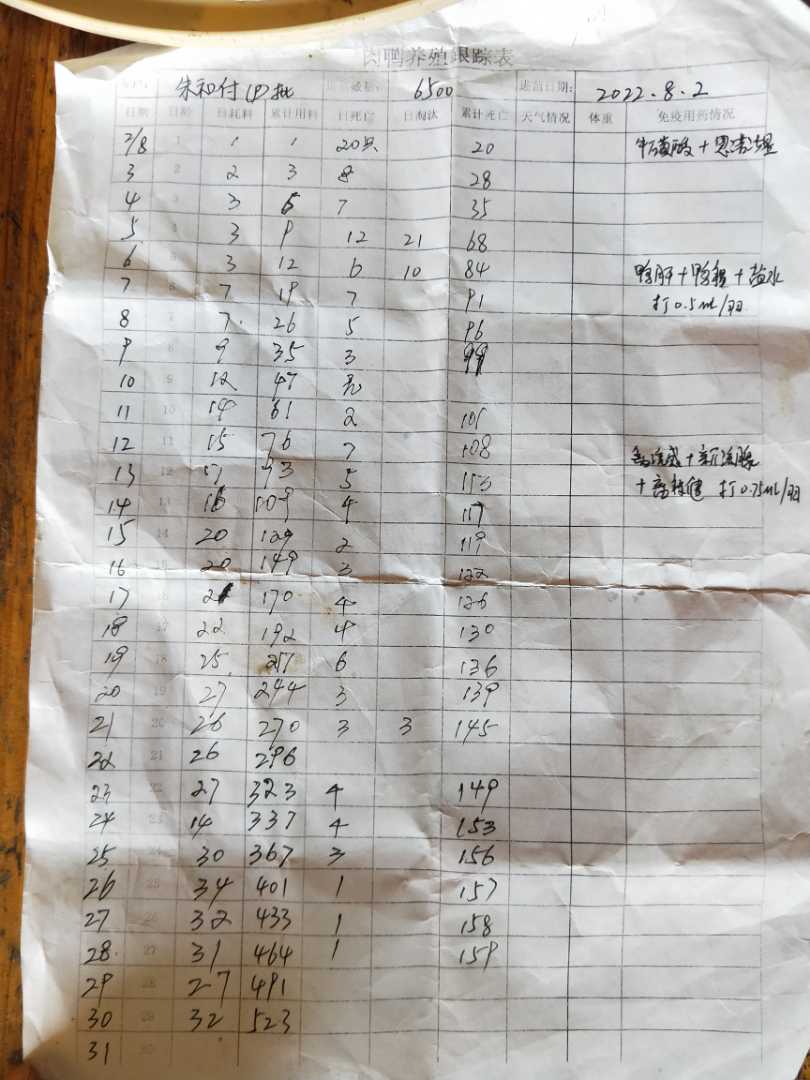 肉鸭养殖跟踪表
朱和付 (P)批 进苗数量: 6500 进苗日期: 2022.8.2
日期 日龄 日耗料 累计用料 日死亡 日淘汰 累计死亡 天气情况 体重 免疫用药情况
2/8 1 1 1 20只 20
3 2 2 3 8 28
4 3 3 6 7 35
5 4 3 9 12 21 68
6 5 3 12 6 10 84 鸭肝+鸭瘟+盐水
7 6 7 19 7 91 打0.5ml/羽
8 7 7 26 5 96
9 8 9 35 3 99
10 9 12 47
11 10 14 61 2 101
12 11 15 76 7 108
13 12 17 93 5
14 13 16 109 4 117 打0.75ml/羽
15 14 20 129 2 119
16 15 20 149 3 122
17 16 21 170 4 126
18 17 22 192 4 130
19 18 25 217 6 136
20 19 27 244 3 139
21 20 26 270 3 3 145
22 21 26 296
23 22 27 323 4 149
24 23 14 337 4 153
25 24 30 367 3 156
26 25 34 401 1 157
27 26 32 433 1 158
28 27 31 464 1 159
29 28 27 491
30 29 32 523
31 30